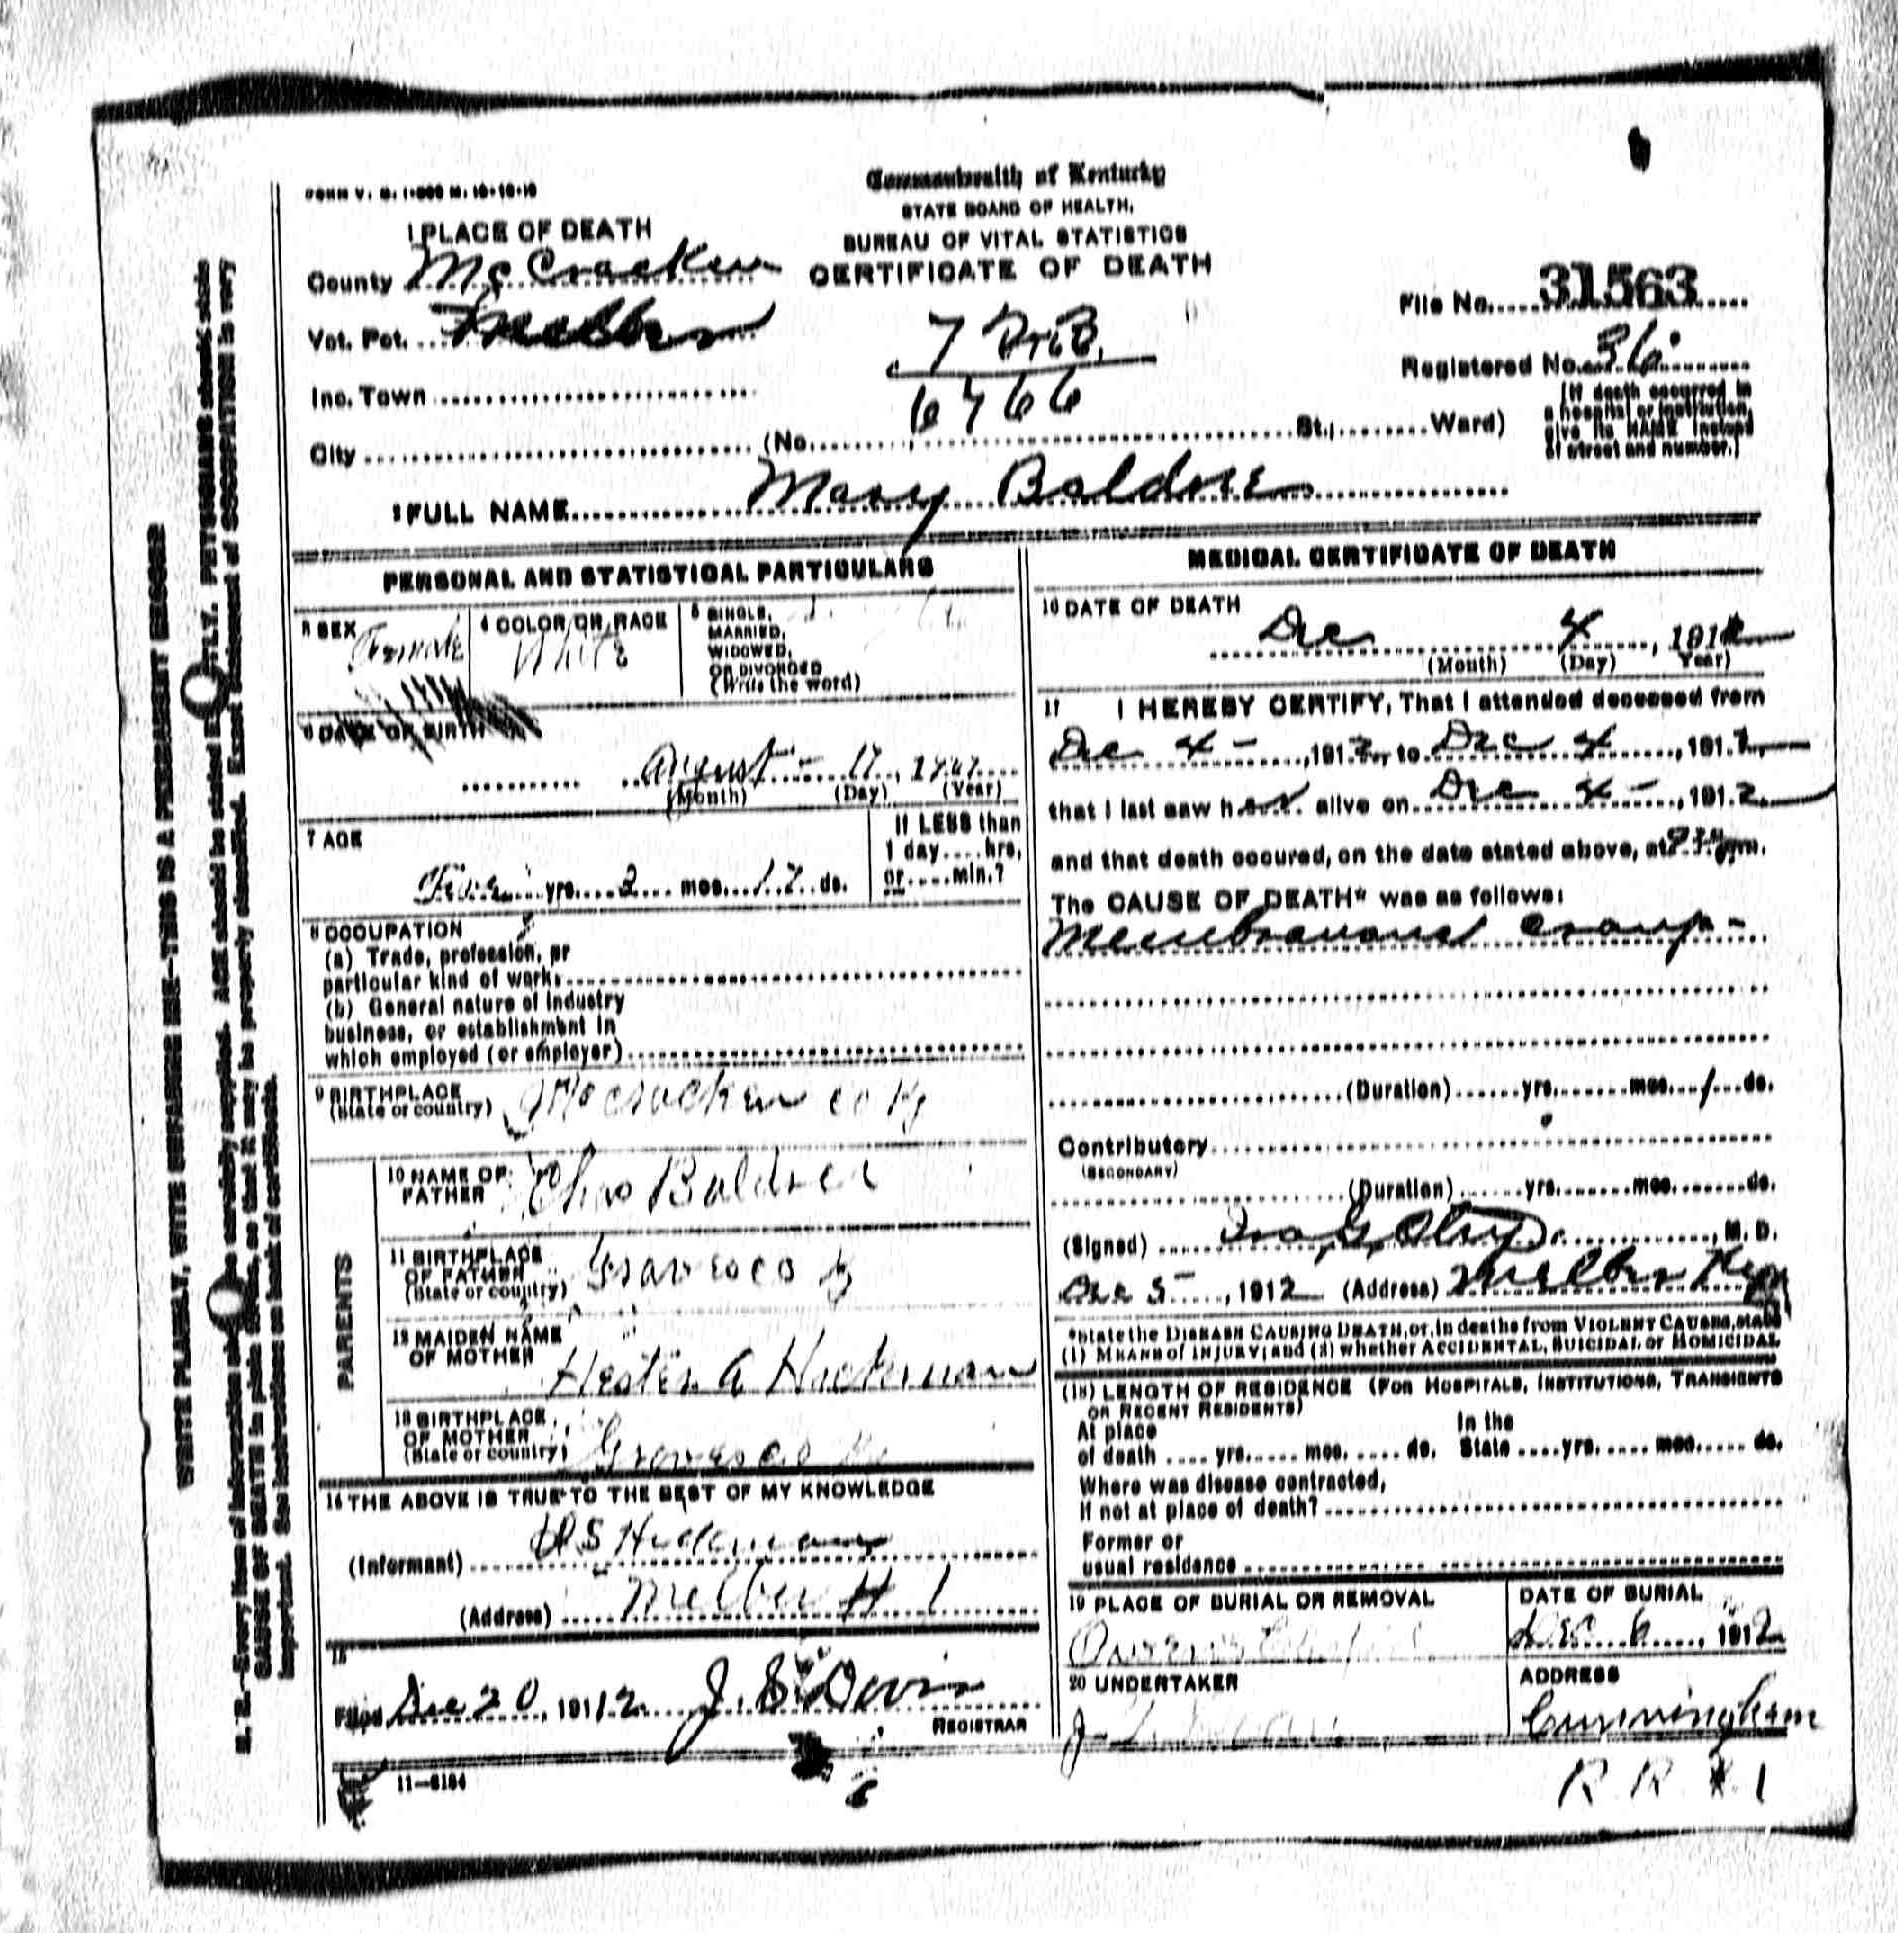 FORM V. S. 1-500 M. 10-10-10
Commonwealth of Kentucky
STATE BOARD OF HEALTH,
BUREAU OF VITAL STATISTICS
CERTIFICATE OF DEATH
1 PLACE OF DEATH
County McCracken
Vot. Pct. Melber
Inc. Town
City (No. St., Ward)
7
6766
File No. 31563
Registered No. 36
(If death occurred in
a hospital or institution,
give its NAME instead
of street and number.)
2 FULL NAME Mary Boldner
PERSONAL AND STATISTICAL PARTICULARS
3 SEX Female
4 COLOR OR RACE White
5 SINGLE,
MARRIED,
WIDOWED,
OR DIVORCED
(Write the word)
6 DATE OF BIRTH
August - 17,
(Month) (Day) (Year)
7 AGE
yrs. 2 mos. 17 ds.
If LESS than
1 day.... hrs,
or.....min.?
8 OCCUPATION
(a) Trade, profession, or
particular kind of work
(b) General nature of industry
business, or establishment in
which employed (or employer)
9 BIRTHPLACE
(State or country) McCracken co Ky
PARENTS
10 NAME OF
FATHER Chas Boldner
11 BIRTHPLACE
OF FATHER
(State or country) Graves co Ky
12 MAIDEN NAME
OF MOTHER Hester A Hickman
13 BIRTHPLACE
OF MOTHER
(State or country) Graves co
14 THE ABOVE IS TRUE TO THE BEST OF MY KNOWLEDGE
(Informant) Hickman
(Address) Melber # 1
15
Filed Dec 20, 1912 J. S. Davis
REGISTRAR
11-5184
MEDICAL CERTIFICATE OF DEATH
16 DATE OF DEATH
Dec 4, 1912
(Month) (Day) Year)
17 I HEREBY CERTIFY, That I attended deceased from
Dec 4 - , 1912, to Dec 4, 1912,
that I last saw her alive on Dec 4 - , 1912,
and that death occured, on the date stated above, at m.
The CAUSE OF DEATH* was as follows:
Membranous Croup -
(Duration) yrs. mos. 1 ds.
Contributory
(SECONDARY)
(Duration) yrs. mos. ds.
(Signed) , M. D.
Dec 5 , 1912 (Address) Melber Ky
*State the DISEASE CAUSING DEATH, or, in deaths from VIOLENT CAUSES, state
(1) MEANS of INJURY; and (2) whether ACCIDENTAL, SUICIDAL or HOMICIDAL
(18) LENGTH OF RESIDENCE (FOR HOSPITALS, INSTITUTIONS, TRANSIENTS
OR RECENT RESIDENTS)
At place In the
of death .... yrs. mos. ds. State .... yrs. mos. ds.
Where was disease contracted,
if not at place of death?
Former or
usual residence
19 PLACE OF BURIAL OR REMOVAL
DATE OF BURIAL
Dec 6, 1912
20 UNDERTAKER
ADDRESS
Cunningham
R. R. # 1
WRITE PLAINLY, WITH UNFADING INK—THIS IS A PERMANENT RECORD
N. B.—Every item of information should be carefully supplied. AGE should be stated EXACTLY. PHYSICIANS should state
CAUSE OF DEATH in plain terms, so that it may be properly classified. Exact statement of OCCUPATION is very
important. See instructions on back of certificate.